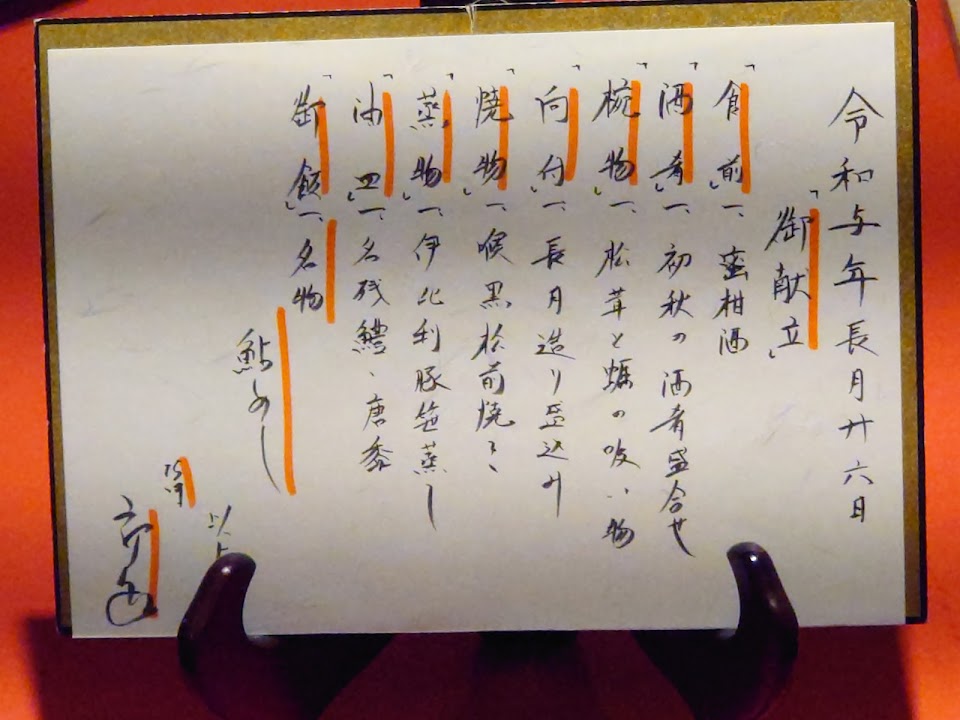 令和与年長月廿六日
「御献立」
「食前」一、蜜柑酒
「酒肴」一、初秋の酒肴盛合せ
「椀物」一、松茸と蠣の吸い物
「向付」一、長月造り盛込み
「焼物」一、喉黒松前焼き
「蒸物」一、伊比利豚笹蒸し
「油皿」一、名残鱧、唐黍
「御飯」一、名物
鮎めし
以上